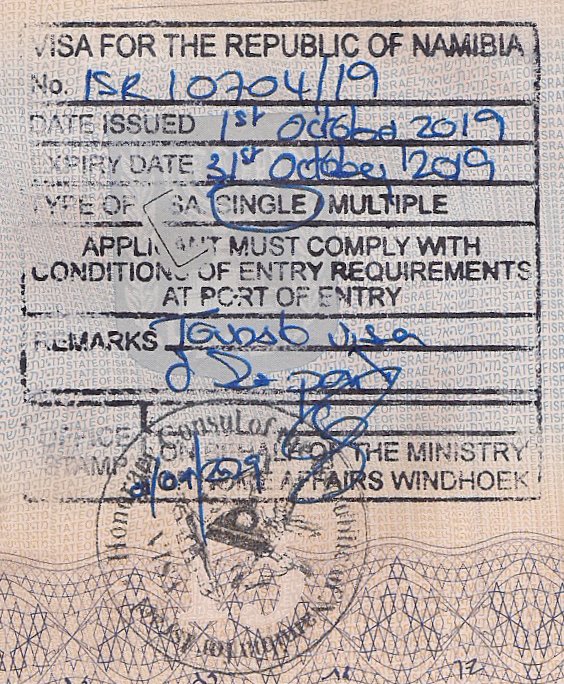 VISA FOR THE REPUBLIC OF NAMIBIA
No. ISR 10704/19
DATE ISSUED 1st October 2019
EXPIRY DATE 31st October 2019
TYPE OF VISA: SINGLE / MULTIPLE
APPLICANT MUST COMPLY WITH
CONDITIONS OF ENTRY REQUIREMENTS
AT PORT OF ENTRY
REMARKS Tourist visa
OFFICE ON BEHALF OF THE MINISTRY
STAMP OF HOME AFFAIRS WINDHOEK
Honorary Consul of the Republic of Namibia for Israel